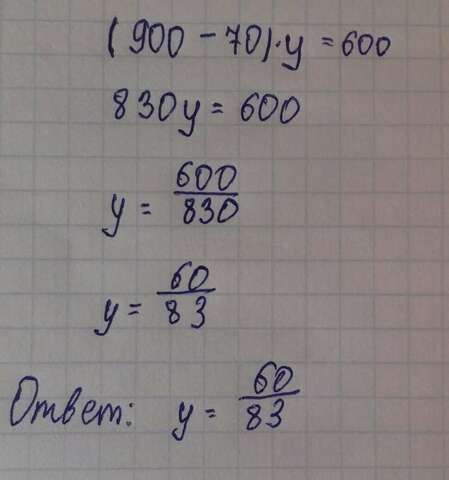 (900 - 70)·y = 600
830y = 600
y = 600/830
y = 60/83
Ответ: y = 60/83